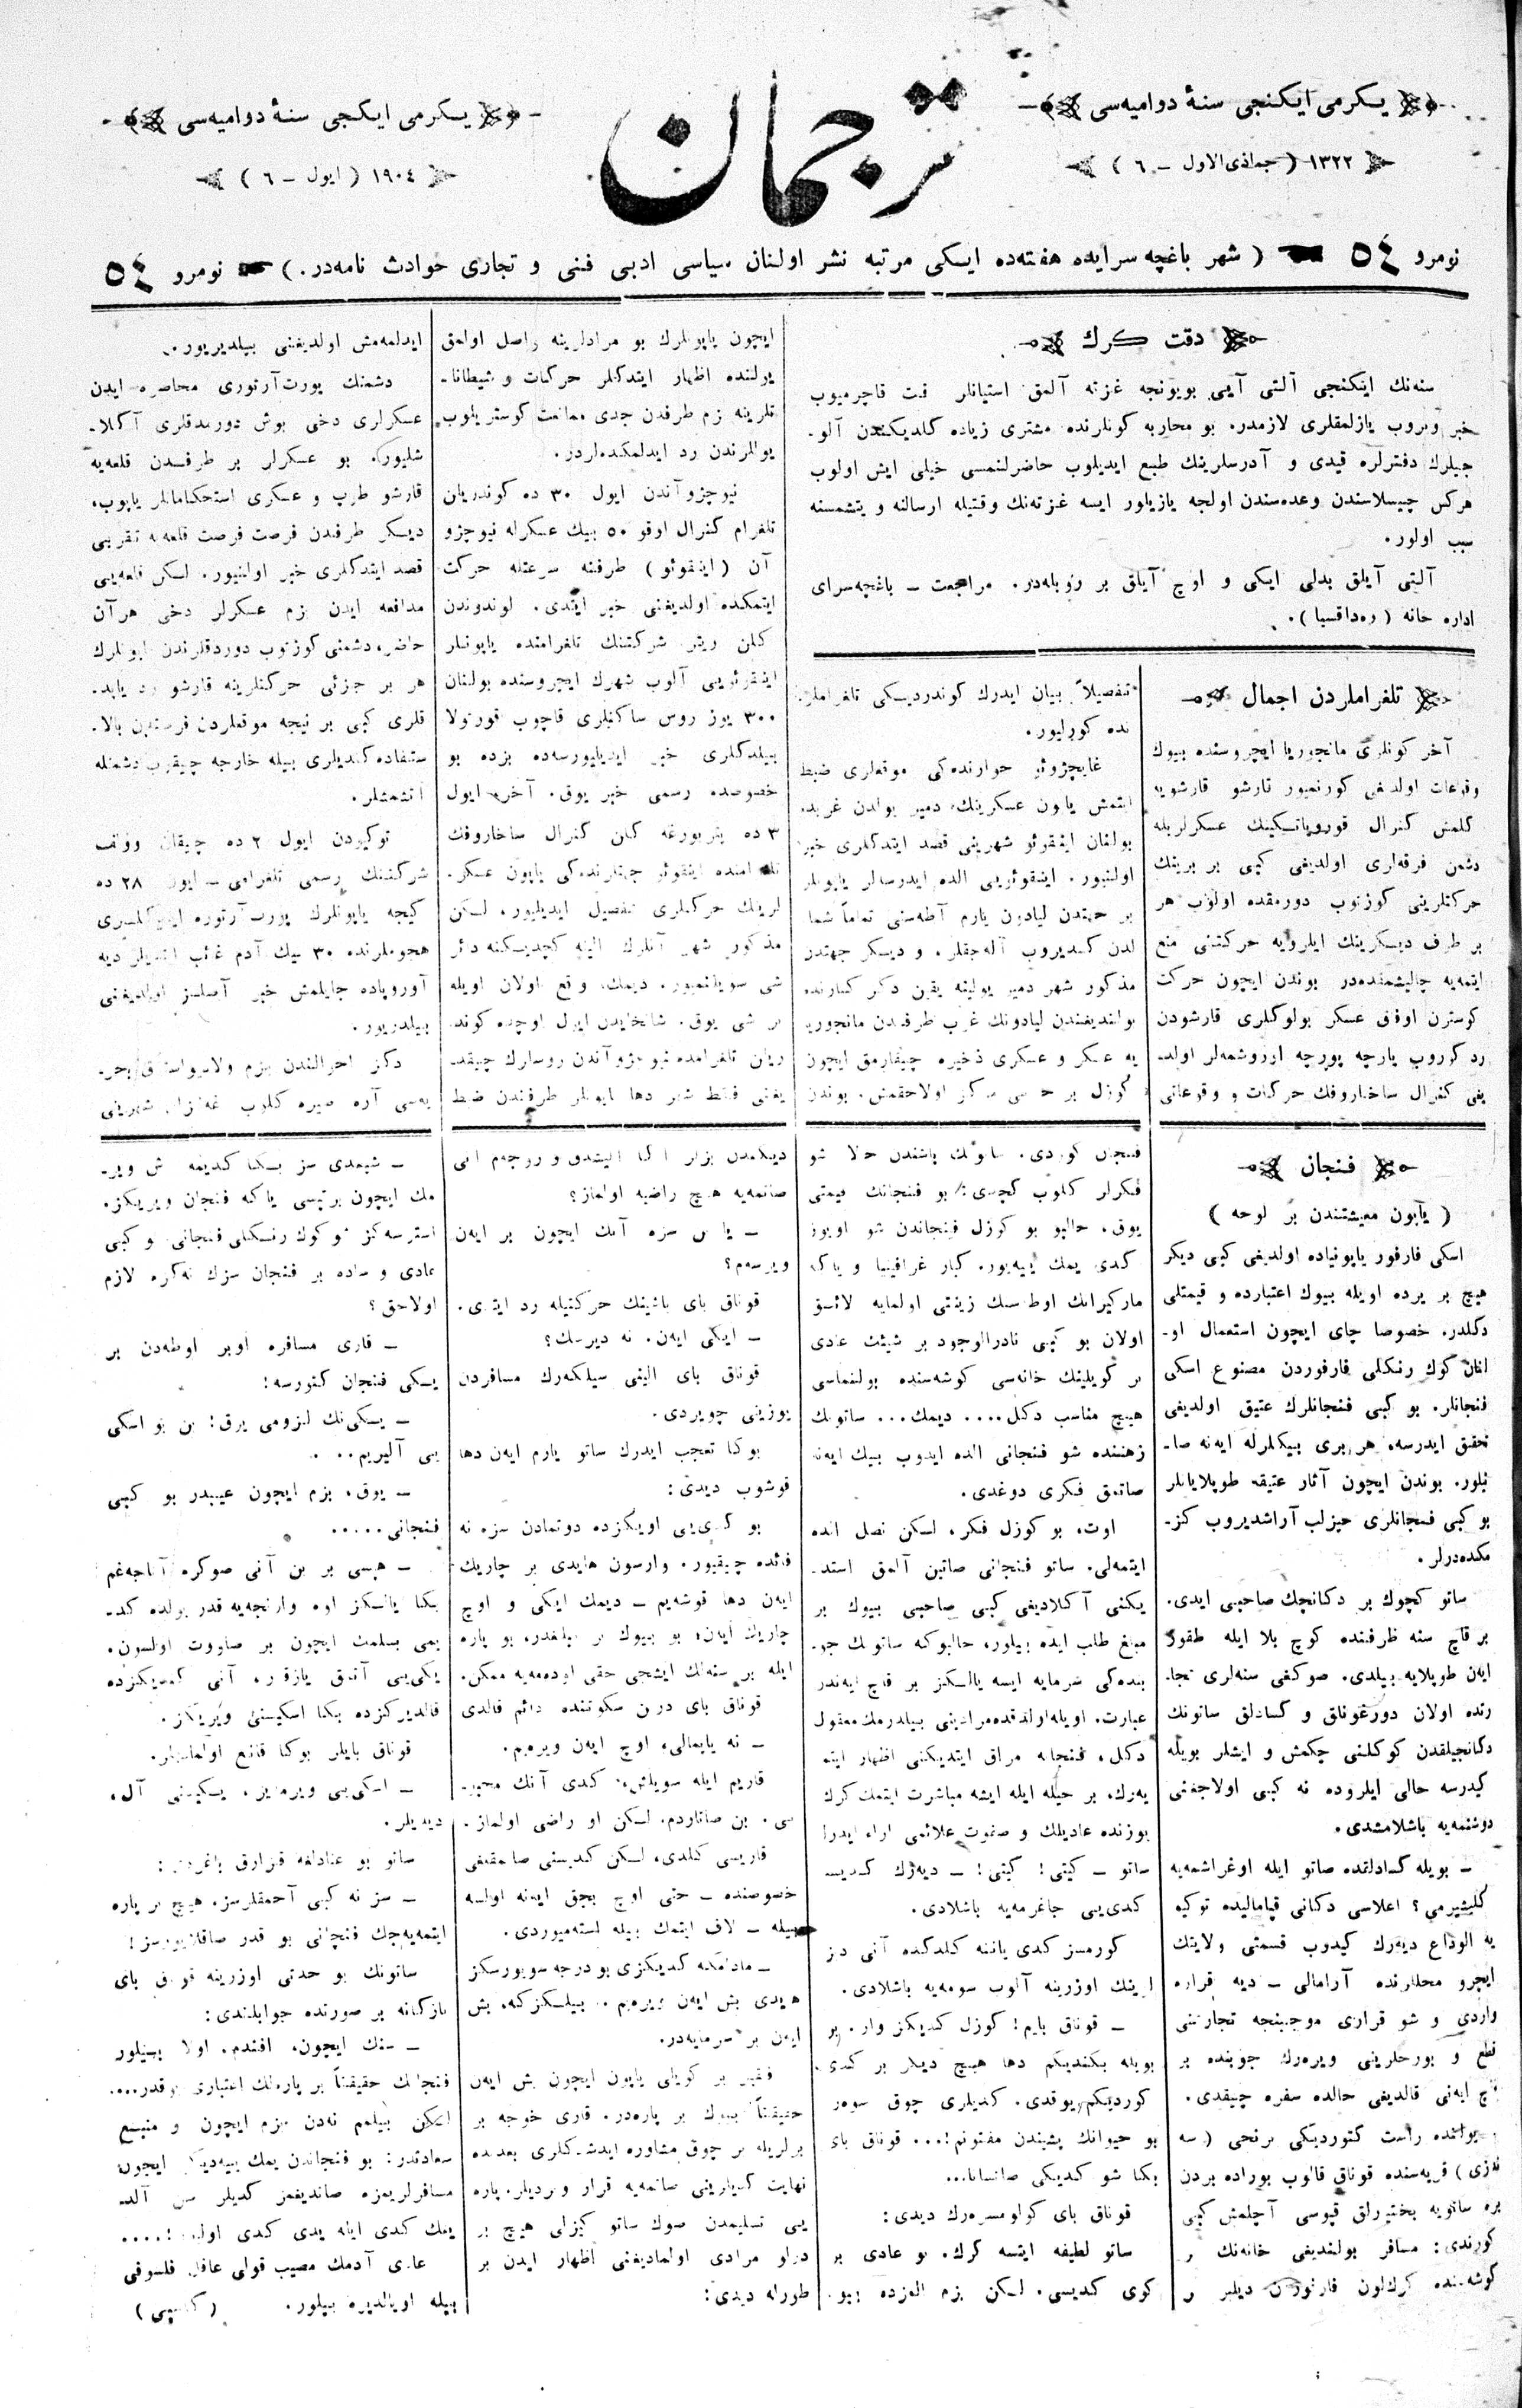 یکرمی ایکنجی سنهٔ دوامیه‌سی
١٣٢٢ ( جماذی‌الاول ـ ٦ )
ترجمان
یکرمی ایکجی سنهٔ دوامیه‌سی
١٩٠٤ ( ایول ـ ٦ )
نومرو ٥٤ ( شهر باغچه سرایده هفته‌ده ایکی مرتبه نشر اولنان سیاسی ادبی فنی و تجاری حوادث نامه‌در. ) نومرو ٥٤
دقت کرك
سنه‌نك ایکنجی آلتی آیی بویونجه غزته آلمق استیانلر فت قاچرمیوب
خبر ویروب یازلمقلری لازمدر. بو محاربه کونلرنده مشتری زیاده کلدیکندن آلو۔
جیلرك دفترلره قیدی و آدرسلرینك طبع ایدیلوب حاضرلنمسی خیلی ایش اولوب
هرکس چیسلاسندن وعده‌سندن اولجه یازیلور ایسه غزته‌نك وقتیله ارسالنه و یتشمسنه
سبب اولور.
آلتی آیلق بدلی ایکی و اوچ آیلق بر روبله‌در. مراجعت ـ باغچه‌سرای
اداره خانه ( ره‌داقسیا ).
تلغراملردن اجمال
آخر کونلری مانجوریا ایچروسنده بیوك
وقوعات اولدیغی کورنمیور قارشو قارشویه
کلمش کنرال قوروپاتکینك عسکرلریله
دشمن فرقه‌لری اولدیغی کبی بر برینك
حرکتلرینی کوزتوب دورمقده اولوب هر
بر طرف دیکرینك ایلرویه حرکتنی منع
ایتمه‌یه چالیشمقده‌در بوندن ایچون حرکت
کوسترن اوفق عسکر بولوکلری قارشودن
رد کوروب پارچه پورچه اوروشمه‌لر اولد۔
یغی کنرال ساخاروفك حرکات و وقوعاتی
تفصیلاً بیان ایدرك کوندردیکی تلغراملر
نده کورلیور.
غایچژوئو جوارنده‌کی موقعلری ضبط
ایتمش یاپون عسکرینك دمیر یولدن غربد.
بولنان اینقوئو شهرینی قصد ایتدکلری خبر
اولنیور. اینقوئویی الده ایدرسه‌لر یاپونلر
بر جهتدن لیادون یارم آطه‌سنی تماماً شما
لدن کسدیروب آله‌جقلر. و دیکر جهتدن
مذکور شهر دمیر یولینه یقین دکز کنارنده
بولندیغندن لیادونك غرب طرفندن مانجوری
یه عسکر و عسکری ذخیره چیقارمق ایچون
کوزل بر مرکز اولاجقمش. بوندن
ایچون یاپونلرك بو مرادلرینه واصل اولمق
یولنده اظهار ایتدکلر حرکات و شیطانا۔
تلرینه بزم طرفدن جدی ممانعت کوستریلوب
یوللرندن رد ایدلمکده‌لردر.
نیوچژوآندن ایول ٣٠ ده کوندریان
تلغرام کنرال اوقو ٥٠ بیك عسکرله نیوچژو
آن ( اینقوئو ) طرفنه سرعتله حرکت
ایتمکده اولدیغنی خبر ایتدی. لوندوندن
کلن ریتر شرکتنك تلغرامنده یاپونلر
اینقوئویی آلوب شهرك ایچروسنده بولنان
٣٠٠ یوز روس ساکنلری قاچوب قورتولا
بیلدکلری خبر ایدیلیورسه‌ده بزده بو
خصوصده رسمی خبر یوق. آخر ایول
٣ ده پتربورغه کلن کنرال ساخاروفك
تلغرامنده اینقوئو جهتلرنده‌کی یاپون عسکر۔
لرینك حرکتلری تفصیل ایدیلیور. لکن
مذکور شهر آنلرك الینه کچدیکنه دائر
شی سویلنمیور. دیمك وقع اولان اویله
بر شی یوق. شانخایدن ایول اوچده کوند
ریلن تلغرامده نیوچژوآندن روسلرك چیقد۔
یغنی فقط شهر دها یاپونلر طرفندن ضبط
ایدلمه‌مش اولدیغنی بیلدیریور.
دشمنك پورت‌آرتوری محاصره ایدن
عسکرلری دخی بوش دورمدقلری آکلا۔
شلیور. بو عسکرلر بر طرفدن قلعه‌یه
قارشو طوپ و عسکری استحکاماتلر یاپوب،
دیکر طرفدن فرصت فرصت قلعه‌یه تقریبی
قصد ایتدکلری خبر اولنیور. لکن قلعه‌یی
مدافعه ایدن بزم عسکرلر دخی هرآن
حاضر، دشمنی کوزتوب دوردقلرندن یاپونلرك
هر بر جزئی حرکتلرینه قارشو رد یاپد۔
قلری کبی بر نیجه موقعلردن فرصتدن بالا۔
ستفاده کندیلری بیله خارجه چیقوب دشمنله
آتشمشلر.
توکیودن ایول ٢ ده چیقان وولف
شرکتنك رسمی تلغرامی ـ ایون ٢٨ ده
کیجه یاپونلرك پورت‌آرتوره ایتدکلری
هجوملرنده ٣٠ بیك آدم غائب ایتدیلر دیه
آوروپاده جایلمش خبر آصلسز اولدیغنی
بیلدریور.
دکز احوالندن بزم ولادیواستاق بحر۔
یه‌سی آره صره کلوب غه‌نزان شهرینی
فنجان
( یاپون معیشتندن بر لوحه )
اسکی فارفور یاپونیاده اولدیغی کبی دیکر
هیچ بر یرده اویله بیوك اعتبارده و قیمتلی
دکلدر. خصوصا چای ایچون استعمال او۔
لنان کوك رنکلی فارفوردن مصنوع اسکی
فنجانلر. بو کبی فنجانلرك عتیق اولدیغی
تحقق ایدرسه، هر بری بیکلرله ایه‌نه صا۔
تیلور. بوندن ایچون آثار عتیقه طوپلایانلر
بو کبی فنجانلری حیزلب آراشدیروب کز۔
مکده‌درلر.
ساتو کچوك بر دکانچك صاحبی ایدی.
بر قاچ سنه ظرفنده کوچ بلا ایله طقوز
ایه‌ن طوپلایه بیلدی. صوکغی سنه‌لری تجا۔
رتده اولان دورغونلق و کسادلق ساتونك
دکانجیلقدن کوکلنی چکمش و ایشلر بویله
کیدرسه حالی ایلروده نه کبی اولاجغنی
دوشنمه‌یه باشلامشدی.
ـ بویله کسادلقده صاتو ایله اوغراشمه‌یه
کلیشیرمی؟ اعلاسی دکانی قپامالیده توکیو
یه الوداع دیه‌رك کیدوب قسمتی ولایتك
ایچرو محللرنده آرامالی ـ دیه قراره
واردی و شو قراری موجبنجه تجارتنی
قطع و بورجلرینی ویره‌رك جوبنده بر
قاچ ایه‌نی قالدیغی حالده سفره چیقدی.
یولنده راست کتوردیکی برنجی ( سه
قریه‌سنده قوناق قالوب بوراده بردن
بره ساتویه بختیرلق قپوسی آچلمش کبی
کورندی: مسافر بولندیغی خانه‌نك بر
کوشه‌سنده فارفوردن دیلبر بر
فنجان کوردی. ساتونك باشندن حالا شو
فکرلر کلوب کچدی: بو فنجانك قیمتی
یوق. حالبو بو کوزل فنجاندن شو اویوز
کدی یمك ییه‌یور. کبار غرافینیا و یاکه
مارکیزانك اوطه‌سنك زینتی اولمایه لائق
اولان بو کبی نادرالوجود بر شیئك عادی
بر کویلینك خانه‌سی کوشه‌سنده بولنماسی
هیچ مناسب دکل.... دیمك... ساتونك
زهننده شو فنجانی الده ایدوب بیك ایه‌نه
صاتمق فکری دوغدی.
اوت، بو کوزل فکر. لکن نصل الده
ایتمه‌لی. ساتو فنجانی صاتین آلمق استد۔
یکنی آکلادیغی کبی صاحبی بیوك بر
مبلغ طلب ایده بیلور، حالبوکه ساتونك جو۔
بنده‌کی سرمایه ایسه یالکز بر قاچ ایه‌ندن
عبارت. اویله اولدقده مرادینی بیلدرمك معقول
دکل، فنجانه مراق ایتدیکنی اظهار ایتمه
یه‌رك، بر حیله ایله ایشه مباشرت ایتمك کرك
یوزنده عادیلك و صغوت علائمی اراء ایدرك
ساتو ـ کیتی! کیتی! ـ دیه‌رك کدیسه
کدی‌یی جاغرمه‌یه باشلادی.
کورمسز کدی یاننه کلدکده آنی دز
لرینك اوزرینه آلوب سومه‌یه باشلادی.
ـ قوناق بایم! کوزل کدیکز وار. بر
بویله بکندیکم دها هیچ دیکر بر کدی
کوردیکم یوقدی. کدیلری چوق سوه‌ر
بو حیوانك پشیندن مفتونم!... قوناق بای
بکا شو کدیکی صاتسانا...
قوناق بای کولومسره‌رك دیدی:
ساتو لطیفه ایتسه کرك. بو عادی بر
کوی کدیسی. لکن بزم الوزده بیو۔
دیکمدن بزلر اکا الیشدق و زوجه‌م انی
صاتمه‌یه هیچ راضیه اولماز؟
ـ یا بن سزه آنك ایچون بر ایه‌ن
ویرسه‌م؟
قوناق بای باشینك حرکتیله رد ایتدی.
ـ ایکی ایه‌ن. نه دیرسك؟
قوناق بای الینی سیلکه‌رك مسافردن
یوزینی چویردی.
بوکا تعجب ایدرك ساتو یارم ایه‌ن دها
قوشوب دیدی:
بو کدی‌یی اویکزده دوتمادن سزه نه
فائده چیقیور. وارسون هایدی بر چاریك
ایه‌ن دها قوشه‌یم ـ دیمك ایکی و اوچ
چاریك ایه‌ن! بو بیوك بر مبلغدر، بو پاره
ایله بر سنه‌لك ایشجی حقی اوده‌مه‌یه ممکن.
قوناق بای درین سکوتنده دائم قالدی
ـ نه یاپمالی، اوچ ایه‌ن ویره‌یم.
قاریم ایله سویلش، کدی آنك محبو۔
بی. بن صاتاردم. لکن او راضی اولماز.
قاریسی کلدی، لکن کدیسنی صاتمقلغی
خصوصنده ـ حتی اوچ بچق ایه‌نه اولسه
بیله ـ لاف ایتمك بیله استه‌میوردی.
ـ مادامکه کدیکزی بو درجه سویورسکز
هایدی بش ایه‌ن ویره‌یم. بیلسکزکه، بش
ایه‌ن بر سرمایه‌در.
فقیر بر کویلی یاپون ایچون بش ایه‌ن
حقیقتاً بیوك بر پاره‌در. قاری خوجه بر
برلریله بر چوق مشاوره ایتدکلری بعدنده
نهایت کدیلرینی صاتمه‌یه قرار ویردیلر. پاره
یی تسلیمدن صوك ساتو کیزلی هیچ بر
درلو مرادی اولمادیغنی اظهار ایدن بر
طورله دیدی:
ـ شیمدی سز بکا کدیمه آش ویر۔
مك ایچون برتپسی یاکه فنجان ویریکز.
استرسه‌کز شو کوك رنکلی فنجانی. و کبی
عادی و ساده بر فنجان سزك نه‌کزه لازم
اولاجق؟
ـ قاری مسافره اوبر اوطه‌دن بر
یکی فنجان کتورسه!
ـ یکی‌نك لزومی یوق! بن بو اسکی
یی آلیریم...
ـ یوق، بزم ایچون عیبدر بو کبی
فنجانی.....
ـ هپسی بر بن آنی صوکره آتاجه‌غم
بکا یالکز اوه وارنجه‌یه قدر یولده کد۔
یمی بسلمك ایچون بر صاووت اولسون.
یکی‌یی آتمق یازقدر، آنی کندیکزده
قالدیرکزده بکا اسکیسنی ویریکز.
قوناق بایلر بوکا قانع اولمادیلر.
ـ اسکی‌یی ویرمه‌یز. یکیسنی آل،
دیدیلر.
ساتو بو عنادلغه قیزارق باغردی:
ـ سز نه کبی آحمقلرسز. هیچ بر پاره
ایتمه‌یه‌جك فنچانی بو قدر صاقلایورسز!
ساتونك بو حدتی اوزرینه قوناق بای
نازکانه بر صورتده جوابلندی:
ـ سنك ایچون، افندم. اولا بیلیلور
فنجانك حقیقتاً بر پاره‌لك اعتباری یوقدر....
لکن بیلمم نه‌دن بزم ایچون و منبع
سعادتدر: بو فنجاندن یمك ییه‌دیکی ایچون
مسافرلریمزه صاتدیغمز کدیلر سن آلد۔
یغك کدی ایله یدی کدی اولدی!....
عادی آدمك مصیب قولی عاقل فلسوفی
بیله اویالدیره بیلور.